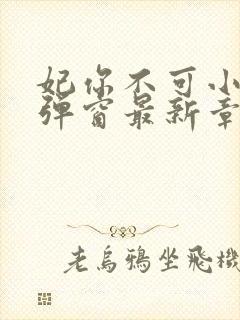 妃你不可小
弹窗最新章
老乌鸦坐飞机